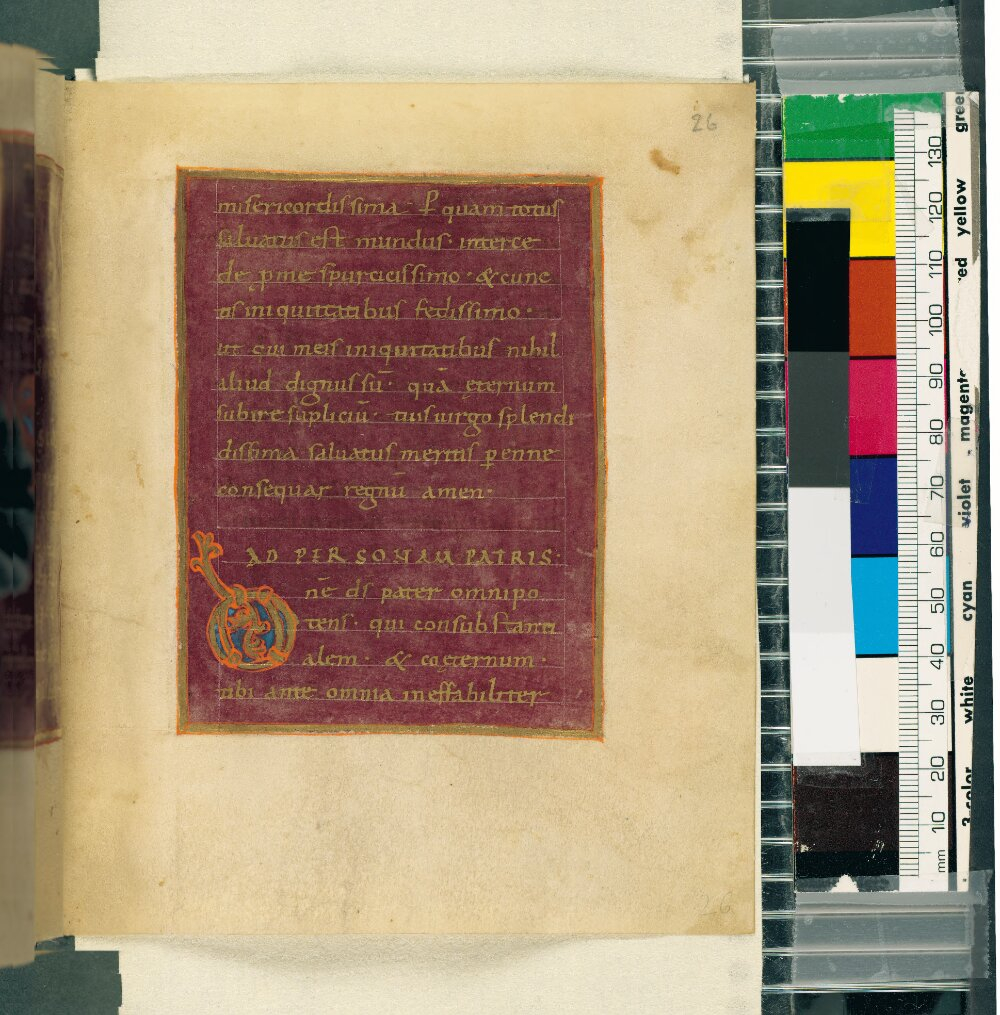 26
misericordissima· ꝑ quam totus
saluatus est mundus· interce
de ꝓ me spurcicissimo· & cunc
tis iniquitatibus fedissimo·
ut qui meis iniquitatibus nihil
aliud dignus sū· quā ęternum
subire supliciū· tuis uirgo splendi
dissima saluatus meritis ꝑenne
consequar regnū amen·
AD PERSONAM PATRIS·
Dn̄e ds pater omnipo
tens· qui consubstanti
alem· & coęternum·
tibi ante omnia ineffabiliter
26
green
yellow
red
magenta
violet
cyan
white
3-color
130
120
110
100
90
80
70
60
50
40
30
20
10
mm